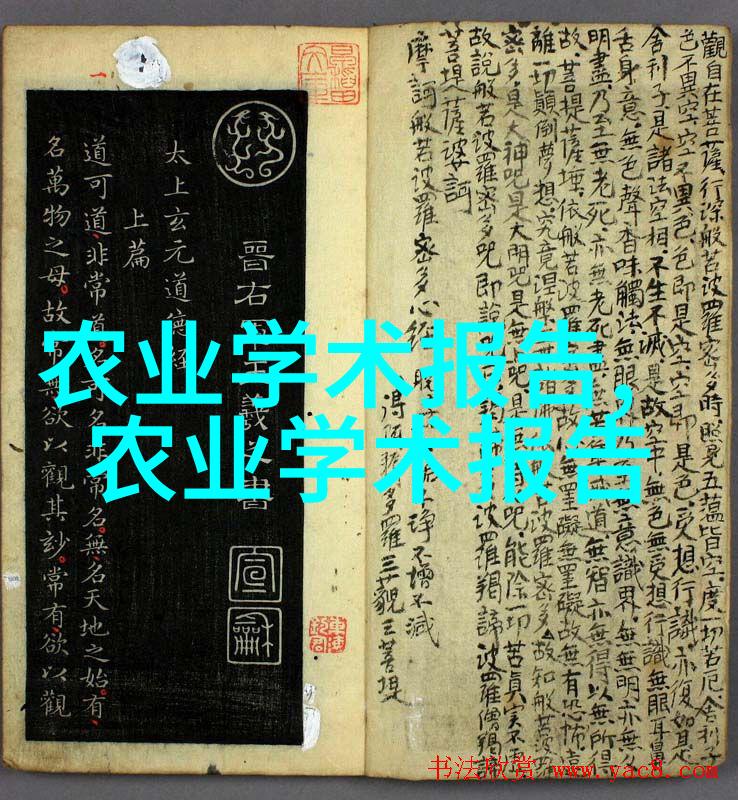 農业学术报告,
农业学术报告
觀自在菩薩行深般若波羅密多時照見五蘊皆空度一切苦厄舍利子
色不異空空不異色色即是空空即是色受想行識亦復如是
舍利子是諸法空相不生不滅是故空中無色無受想行識無眼耳鼻
舌身意無色聲香味觸法無眼界乃至無意識界無無明亦無無
明盡乃至無老死亦無老死盡無苦道無智亦無得以無所得
故菩提薩埵依般若波羅多故無罣礙無罣礙故無有恐怖遠
離一切顛倒夢想究竟涅般若波羅密多故知般若波羅
密多是大神咒是大明咒是無上咒是咒能除一切苦真實不虛
故說般若波羅密多咒即說波羅揭諦波羅僧揭諦
菩提薩婆訶
摩訶般若波羅密多心經
淨不增不減
得多羅三藐三菩提
晉右軍王羲之書
太上玄元道德經
上篇
道可道非常道名可名非常名無名天地之始有
名萬物之母故常無欲以觀其妙常有欲以觀
宣龢
书法欣赏 www.yac8.com